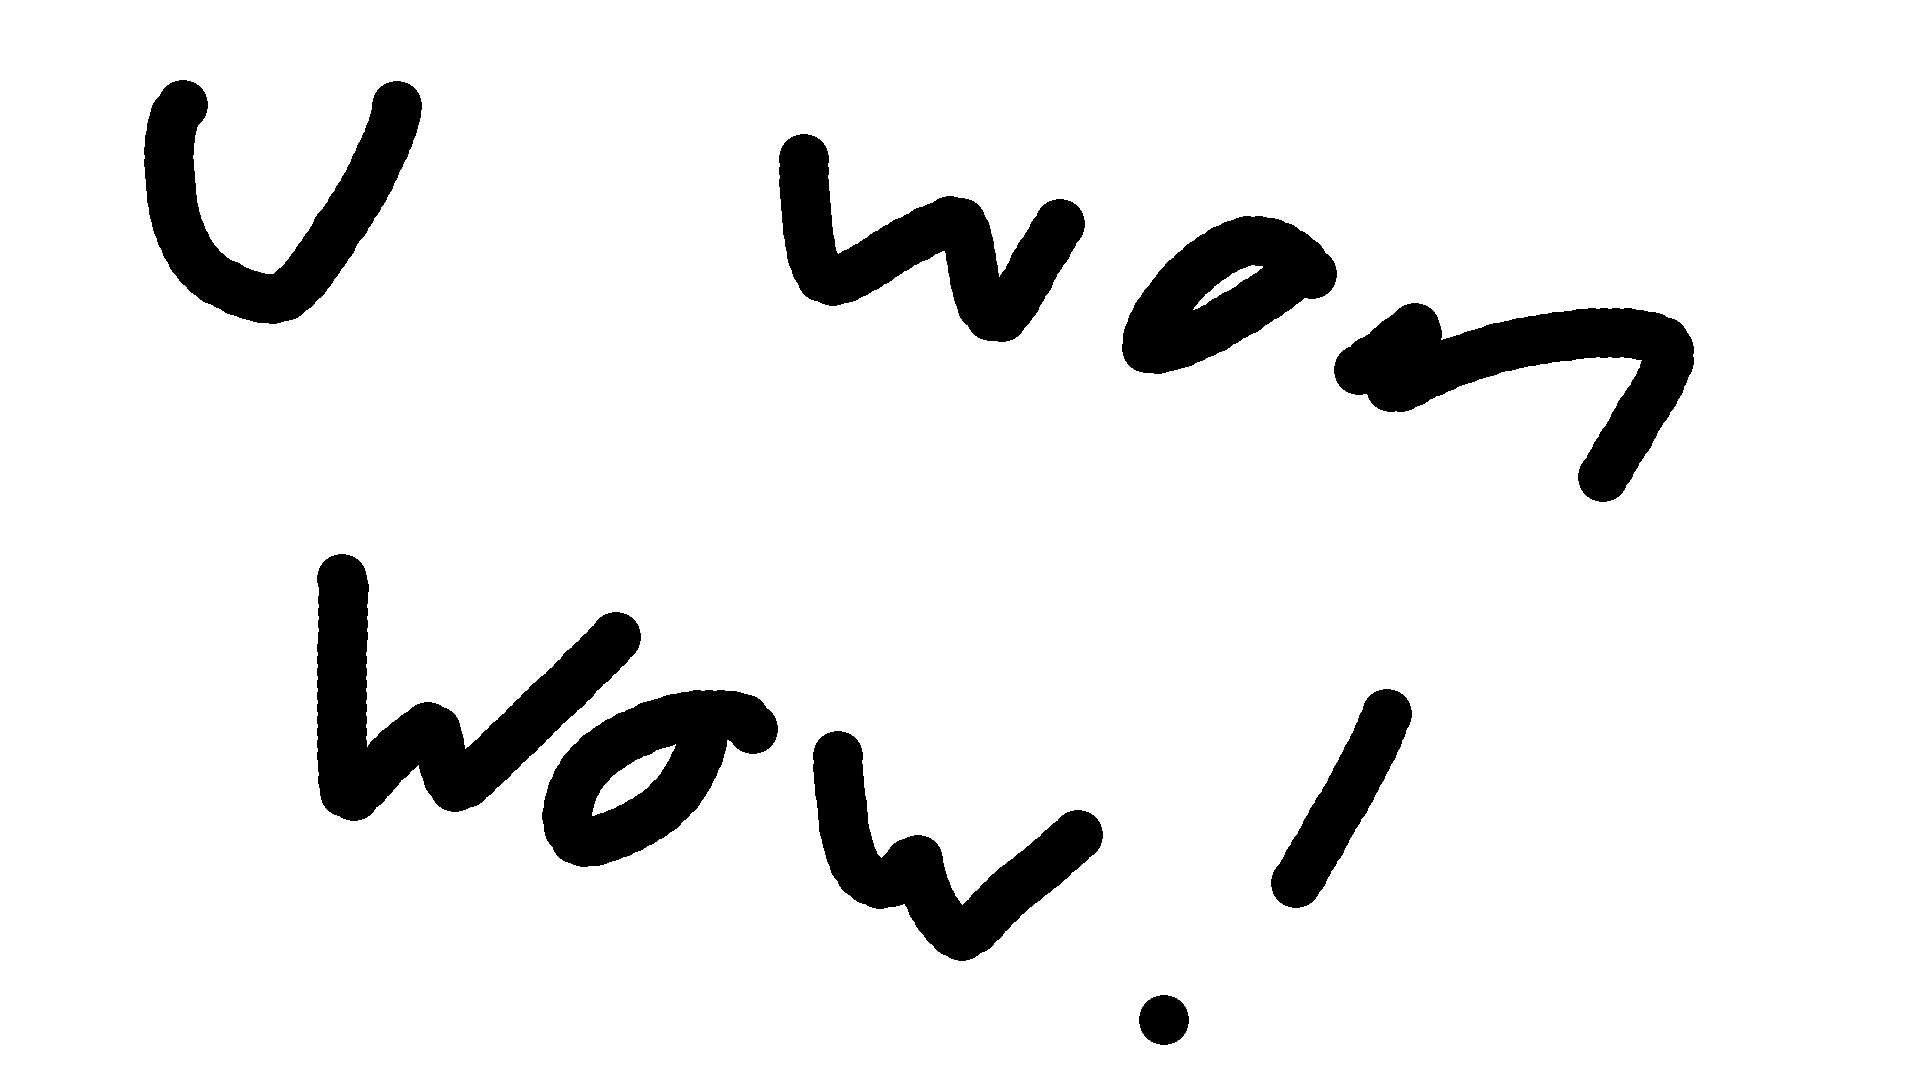 U won
Wow!